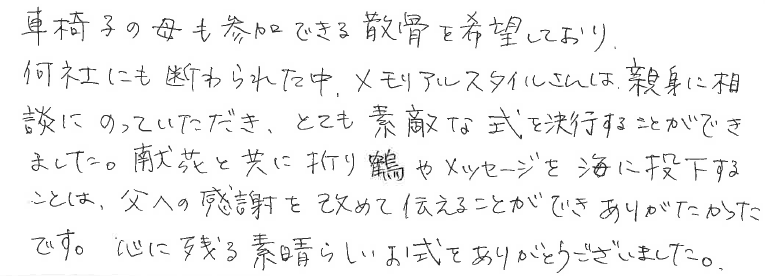 車椅子の母も参加できる散骨を希望しており、
何社にも断わられた中、メモリアルスタイルさんは、親身に相
談にのっていただき、とても素敵な式を決行することができ
ました。献花と共に折り鶴やメッセージを海に投下する
ことは、父への感謝を改めて伝えることができありがたかった
です。心に残る素晴らしいお式をありがとうございました。